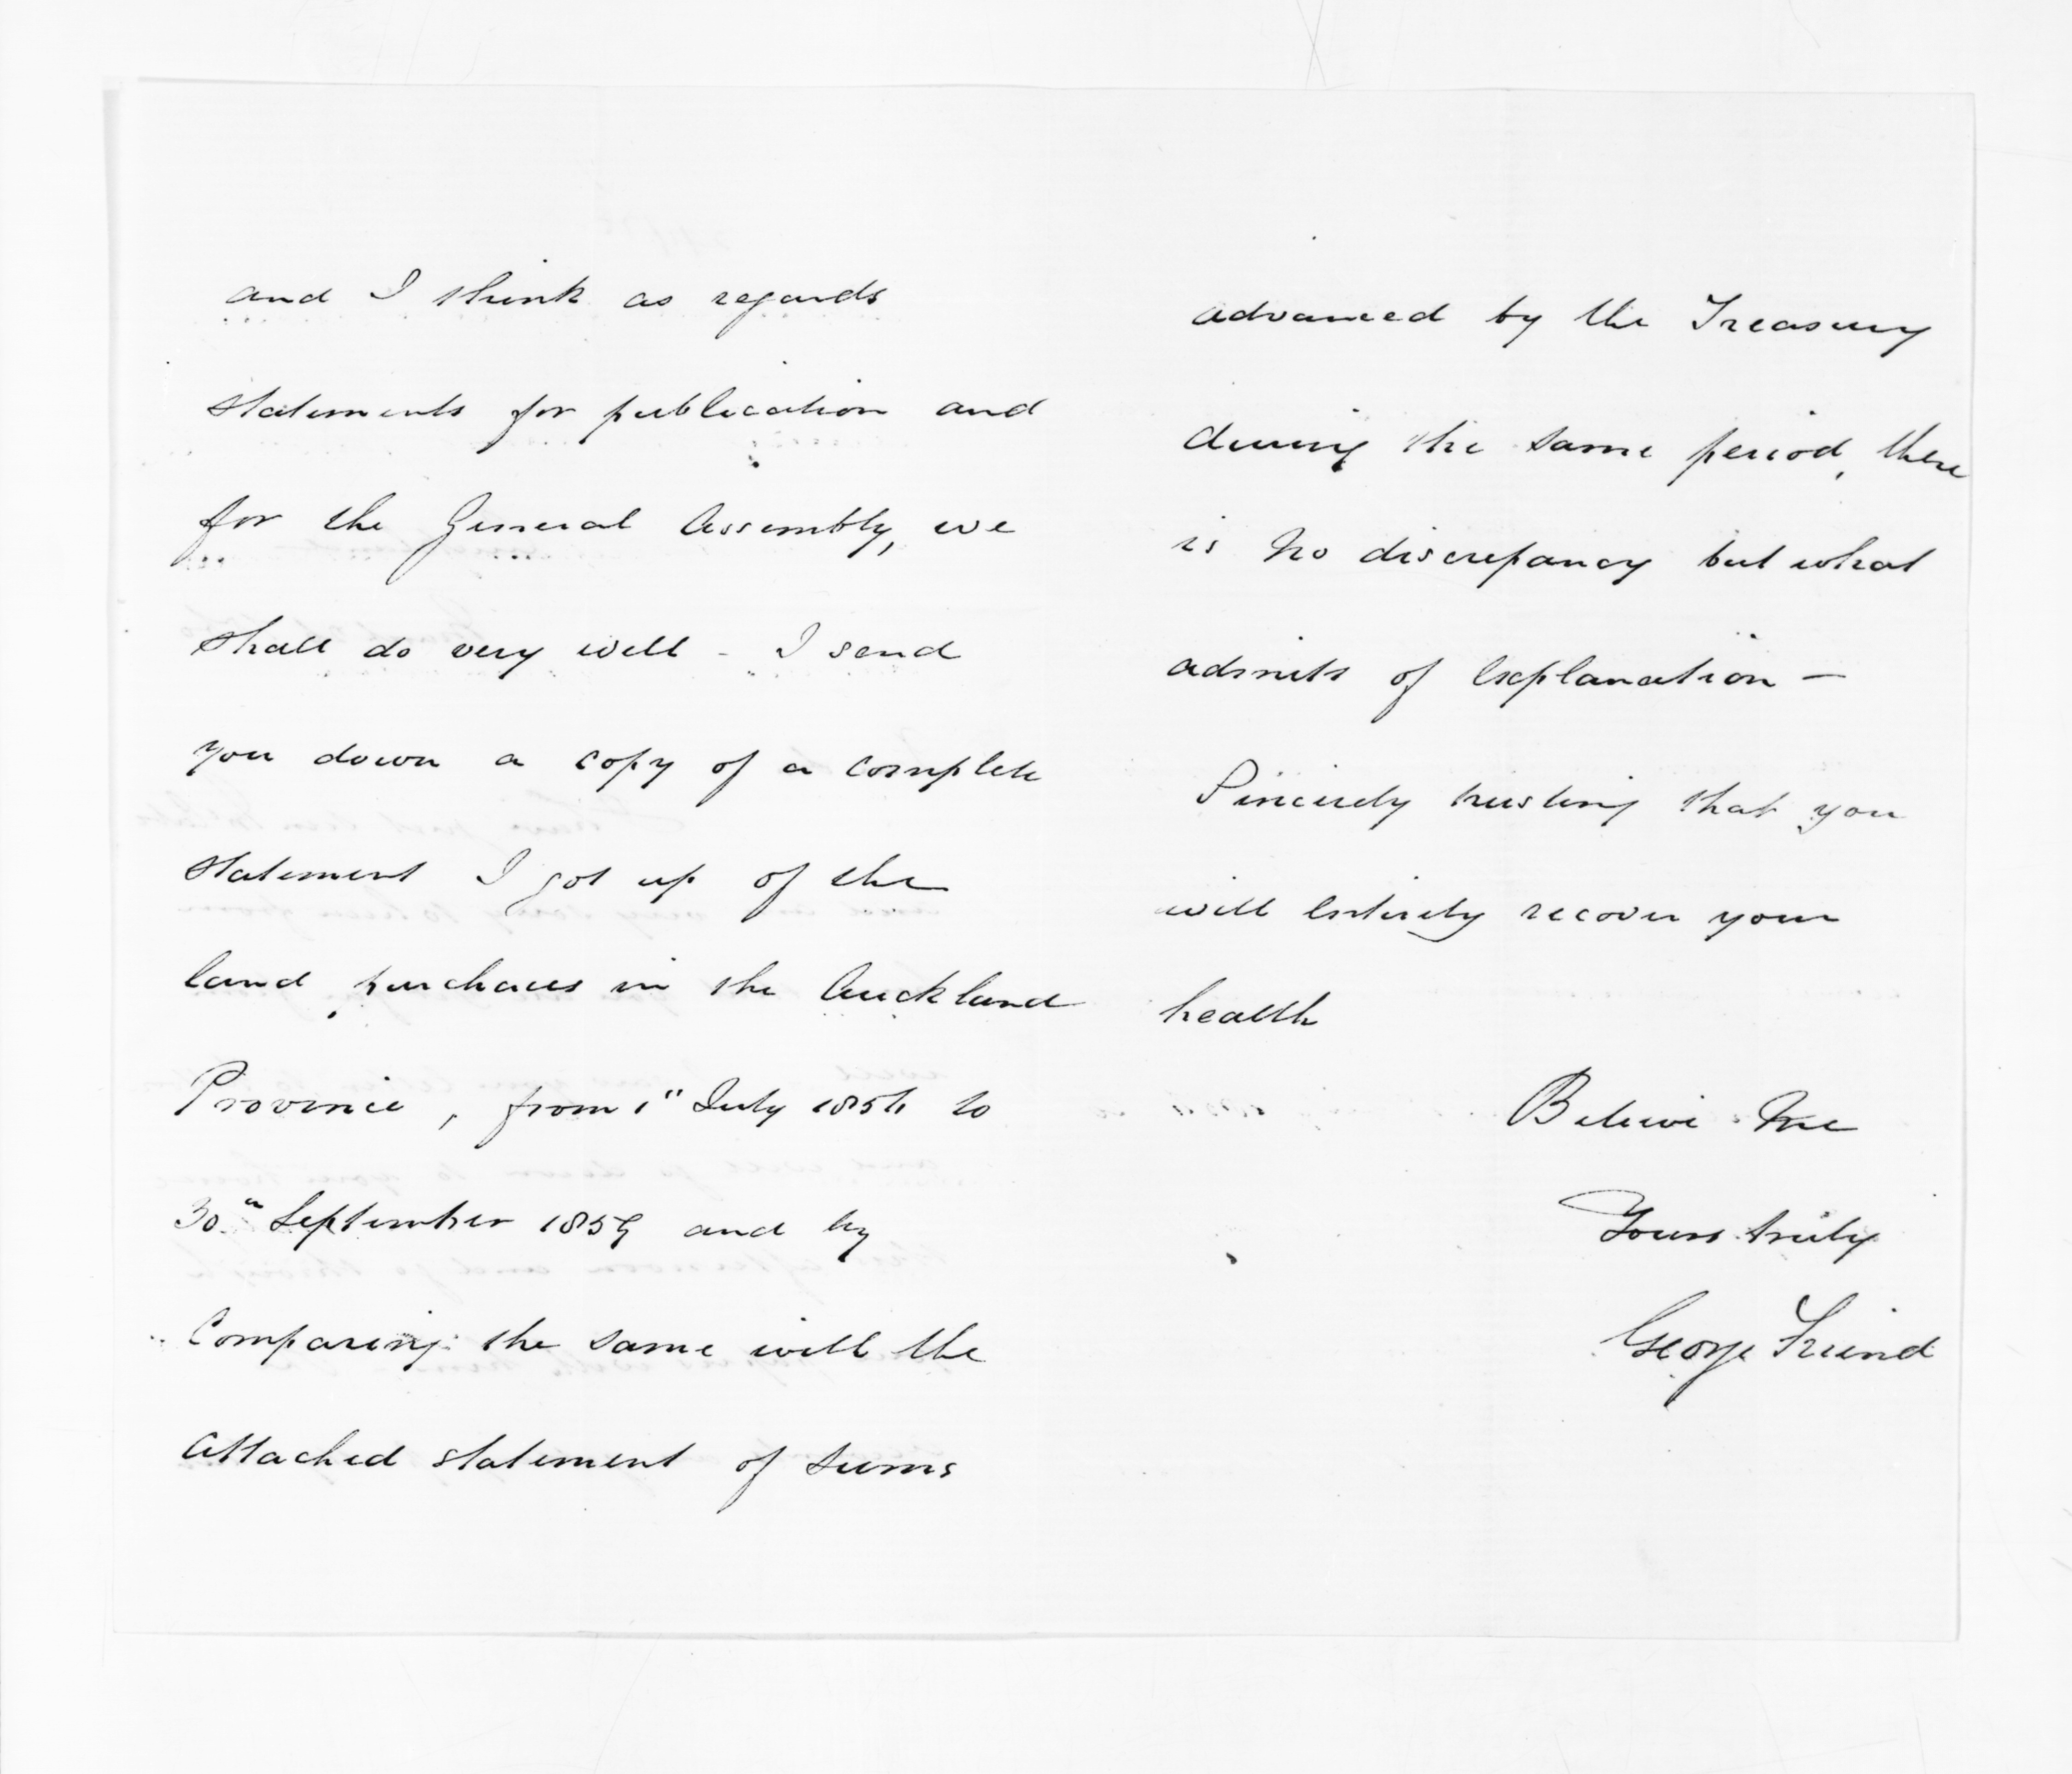 and I think as regards
statements for publication and
for the General Assembly, we
shall do very well - I send
you down a copy of a complete
statement I got up of the
land purchases in the Auckland
Province, from 1" July to
30" September 1859 and by
Comparing the same with the
attached statement of sums
advanced by the Treasury
during the same period, there
is no discrepancy but what
admits of Explanation —
Sincerely trusting that you
will Entirely recover your
health
Believe me
Yours truly
George Friend